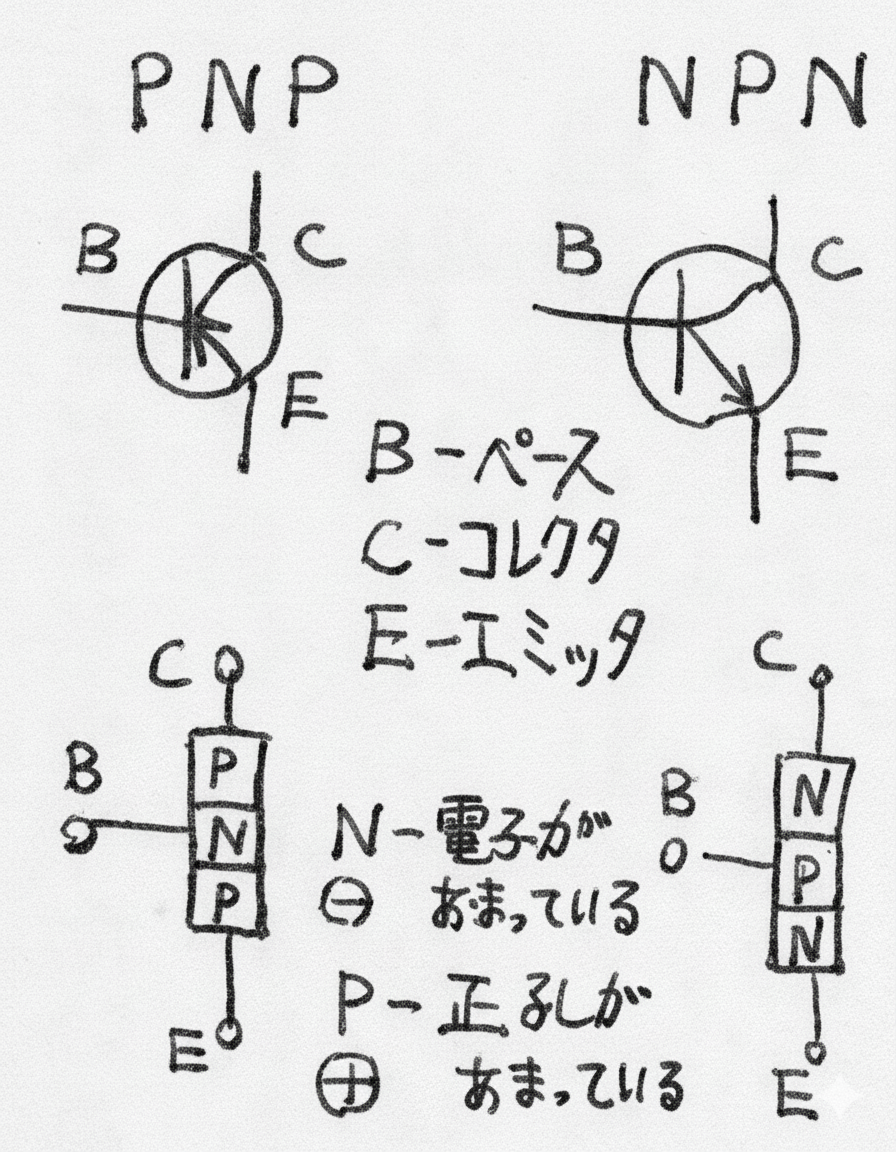 PNP
NPN
B
C
E
B
C
E
B-ペース
C-コレクタ
E-エミッタ
C
B
P
N
P
E
C
B
N
P
N
E
N-電子が
⊖ あまっている
P-正孔が
⊕ あまっている